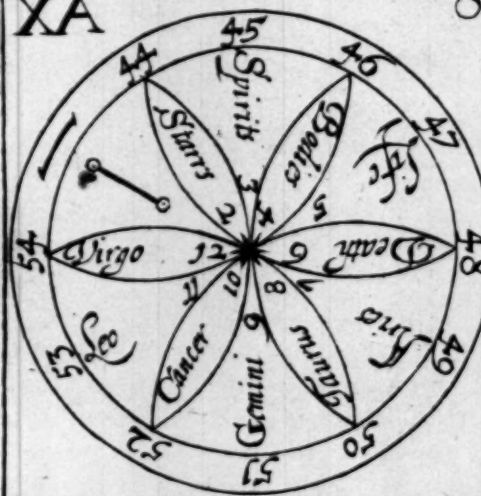 XA 8
44
45
46
47
48
49
50
51
52
53
54
Starrs
Spirits
Bodies
Life
Death
Aries
Taurus
Gemini
Cancer
Leo
Virgo
2
3
4
5
6
7
8
9
10
11
12